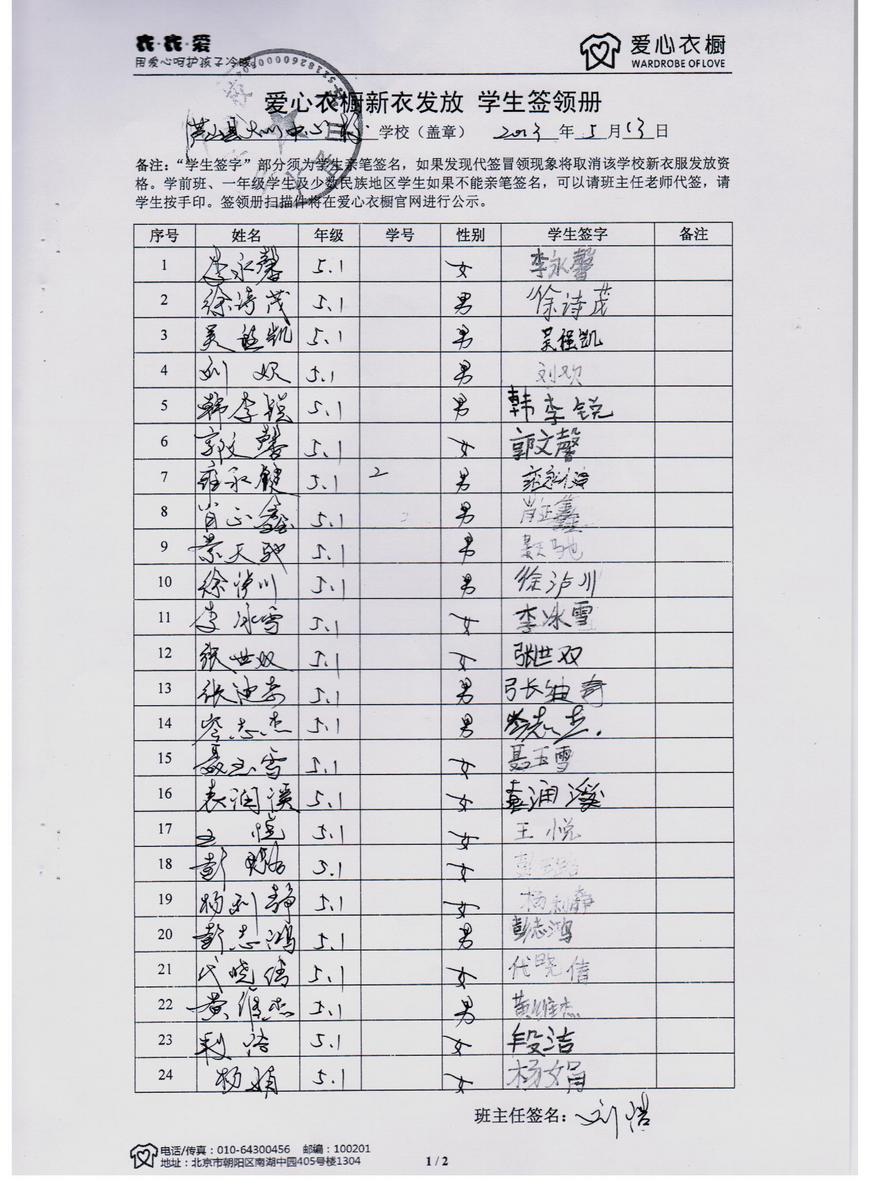 衣·衣·爱
用爱心呵护孩子冷暖
爱心衣橱
WARDROBE OF LOVE
爱心衣橱新衣发放 学生签领册
学校（盖章） 2013 年 5 月 13 日
备注：“学生签字”部分须为学生亲笔签名，如果发现代签冒领现象将取消该学校新衣服发放资
格。学前班、一年级学生及少数民族地区学生如果不能亲笔签名，可以请班主任老师代签，请
学生按手印。签领册扫描件将在爱心衣橱官网进行公示。
序号 姓名 年级 学号 性别 学生签字 备注
1 李永馨 5.1 女 李永馨
2 徐诗茂 5.1 男 徐诗茂
3 吴强凯 5.1 男 吴强凯
4 刘欢 5.1 男 刘欢
5 韩李锐 5.1 男 韩李锐
6 郭文馨 5.1 女 郭文馨
7 雍永健 5.1 2 男
8 肖正鑫 5.1 男 肖正鑫
9 景天驰 5.1 男 景天驰
10 徐泸川 5.1 男 徐泸川
11 李冰雪 5.1 女 李冰雪
12 张世双 5.1 女 张世双
13 张迪奇 5.1 男 张迪奇
14 岑志杰 5.1 男 岑志杰.
15 聂玉雪 5.1 女 聂玉雪
16 袁润溪 5.1 女 袁润溪
17 王悦 5.1 女 王悦
18 彭 5.1 女 彭
19 杨利静 5.1 女 杨利静
20 彭志鸿 5.1 男 彭志鸿
21 代晓倩 5.1 女 代晓倩
22 黄维杰 5.1 男 黄维杰
23 段洁 5.1 女 段洁
24 杨娟 5.1 女 杨娟
班主任签名：刘浩
电话/传真：010-64300456 邮编：100201
地址：北京市朝阳区南湖中园405号楼1304
1 / 2